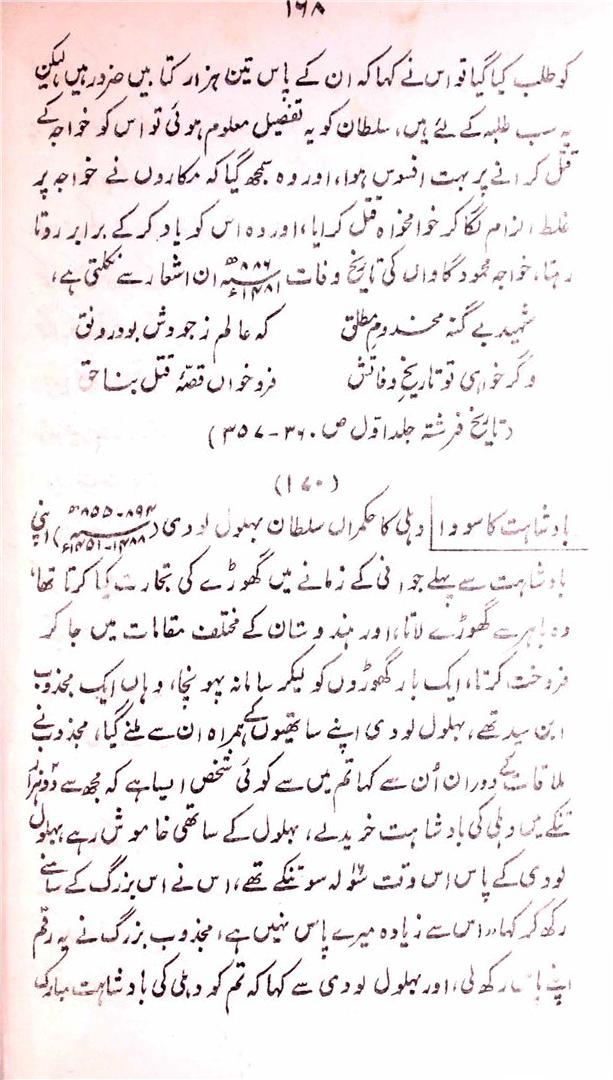 ۱۶۸
کو طلب کیا گیا تو اس نے کہا کہ ان کے پاس تین ہزار کتابیں ضرور ہیں لیکن
یہ سب طلبہ کے لئے ہیں، سلطان کو یہ تفصیل معلوم ہوئی تو اس کو خواجہ کے
قتل کرانے پر بہت افسوس ہوا، اور وہ سمجھ گیا کہ مکاروں نے خواجہ پر
غلط الزام لگا کر خوامخواہ قتل کرایا، اور وہ اس کو یاد کر کے برابر روتا
رہتا، خواجہ محمود گاواں کی تاریخ وفات ۸۸۶ھ ۱۴۸۱ء ان اشعار سے نکلتی ہے،
شہید بے گنہ مخدوم مطلق کہ عالم ز جودش بود رونق
وگر خواہی تو تاریخ وفاتش فرو خواں قصۂ قتل بناحق
(تاریخ فرشتہ جلد اول ص ۳۶۰-۳۵۷)
(۱۷۰)
بادشاہت کا سودا دہلی کا حکمراں سلطان بہلول لودی (۸۹۴-۸۵۵ھ ۱۴۸۸-۱۴۵۱ء) اپنی
بادشاہت سے پہلے جوانی کے زمانے میں گھوڑے کی تجارت کیا کرتا تھا،
وہ باہر سے گھوڑے لاتا، اور ہندوستان کے مختلف مقامات میں جا کر
فروخت کرتا، ایک بار گھوڑوں کو لیکر سامانہ پہونچا، وہاں ایک مجذوب
ابن سید تھے، بہلول لودی اپنے ساتھیوں کے ہمراہ ان سے ملنے گیا، مجذوب نے
ملاقات کے دوران اُن سے کہا تم میں سے کوئی شخص ایسا ہے کہ مجھ سے دو ہزار
تنکے میں دہلی کی بادشاہت خریدلے، بہلول کے ساتھی خاموش رہے، بہلول
لودی کے پاس اس وقت سولہ سو تنکے تھے، اس نے اس بزرگ کے سامنے
رکھ کر کہا، اس سے زیادہ میرے پاس نہیں ہے، مجذوب بزرگ نے یہ رقم
اپنے پاس رکھ لی، اور بہلول لودی سے کہا کہ تم کو دہلی کی بادشاہت مبارک